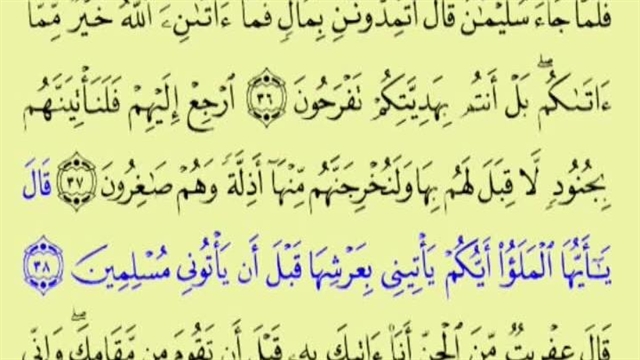 فَلَمَّا جَآءَ سُلَيْمَٰنَ قَالَ أَتُمِدُّونَنِ بِمَالٍ فَمَآ ءَاتَىٰنِۦَ ٱللَّهُ خَيْرٌ مِّمَّآ
ءَاتَىٰكُمۖ بَلْ أَنتُم بِهَدِيَّتِكُمْ تَفْرَحُونَ ٣٦ ٱرْجِعْ إِلَيْهِمْ فَلَنَأْتِيَنَّهُم
بِجُنُودٍ لَّا قِبَلَ لَهُم بِهَا وَلَنُخْرِجَنَّهُم مِّنْهَآ أَذِلَّةً وَهُمْ صَٰغِرُونَ ٣٧ قَالَ
يَٰٓأَيُّهَا ٱلْمَلَؤُا۟ أَيُّكُمْ يَأْتِينِى بِعَرْشِهَا قَبْلَ أَن يَأْتُونِى مُسْلِمِينَ ٣٨
قَالَ عِفْرِيتٌ مِّنَ ٱلْجِنِّ أَنَا۠ ءَاتِيكَ بِهِۦ قَبْلَ أَن تَقُومَ مِن مَّقَامِكَۖ وَإِنِّى